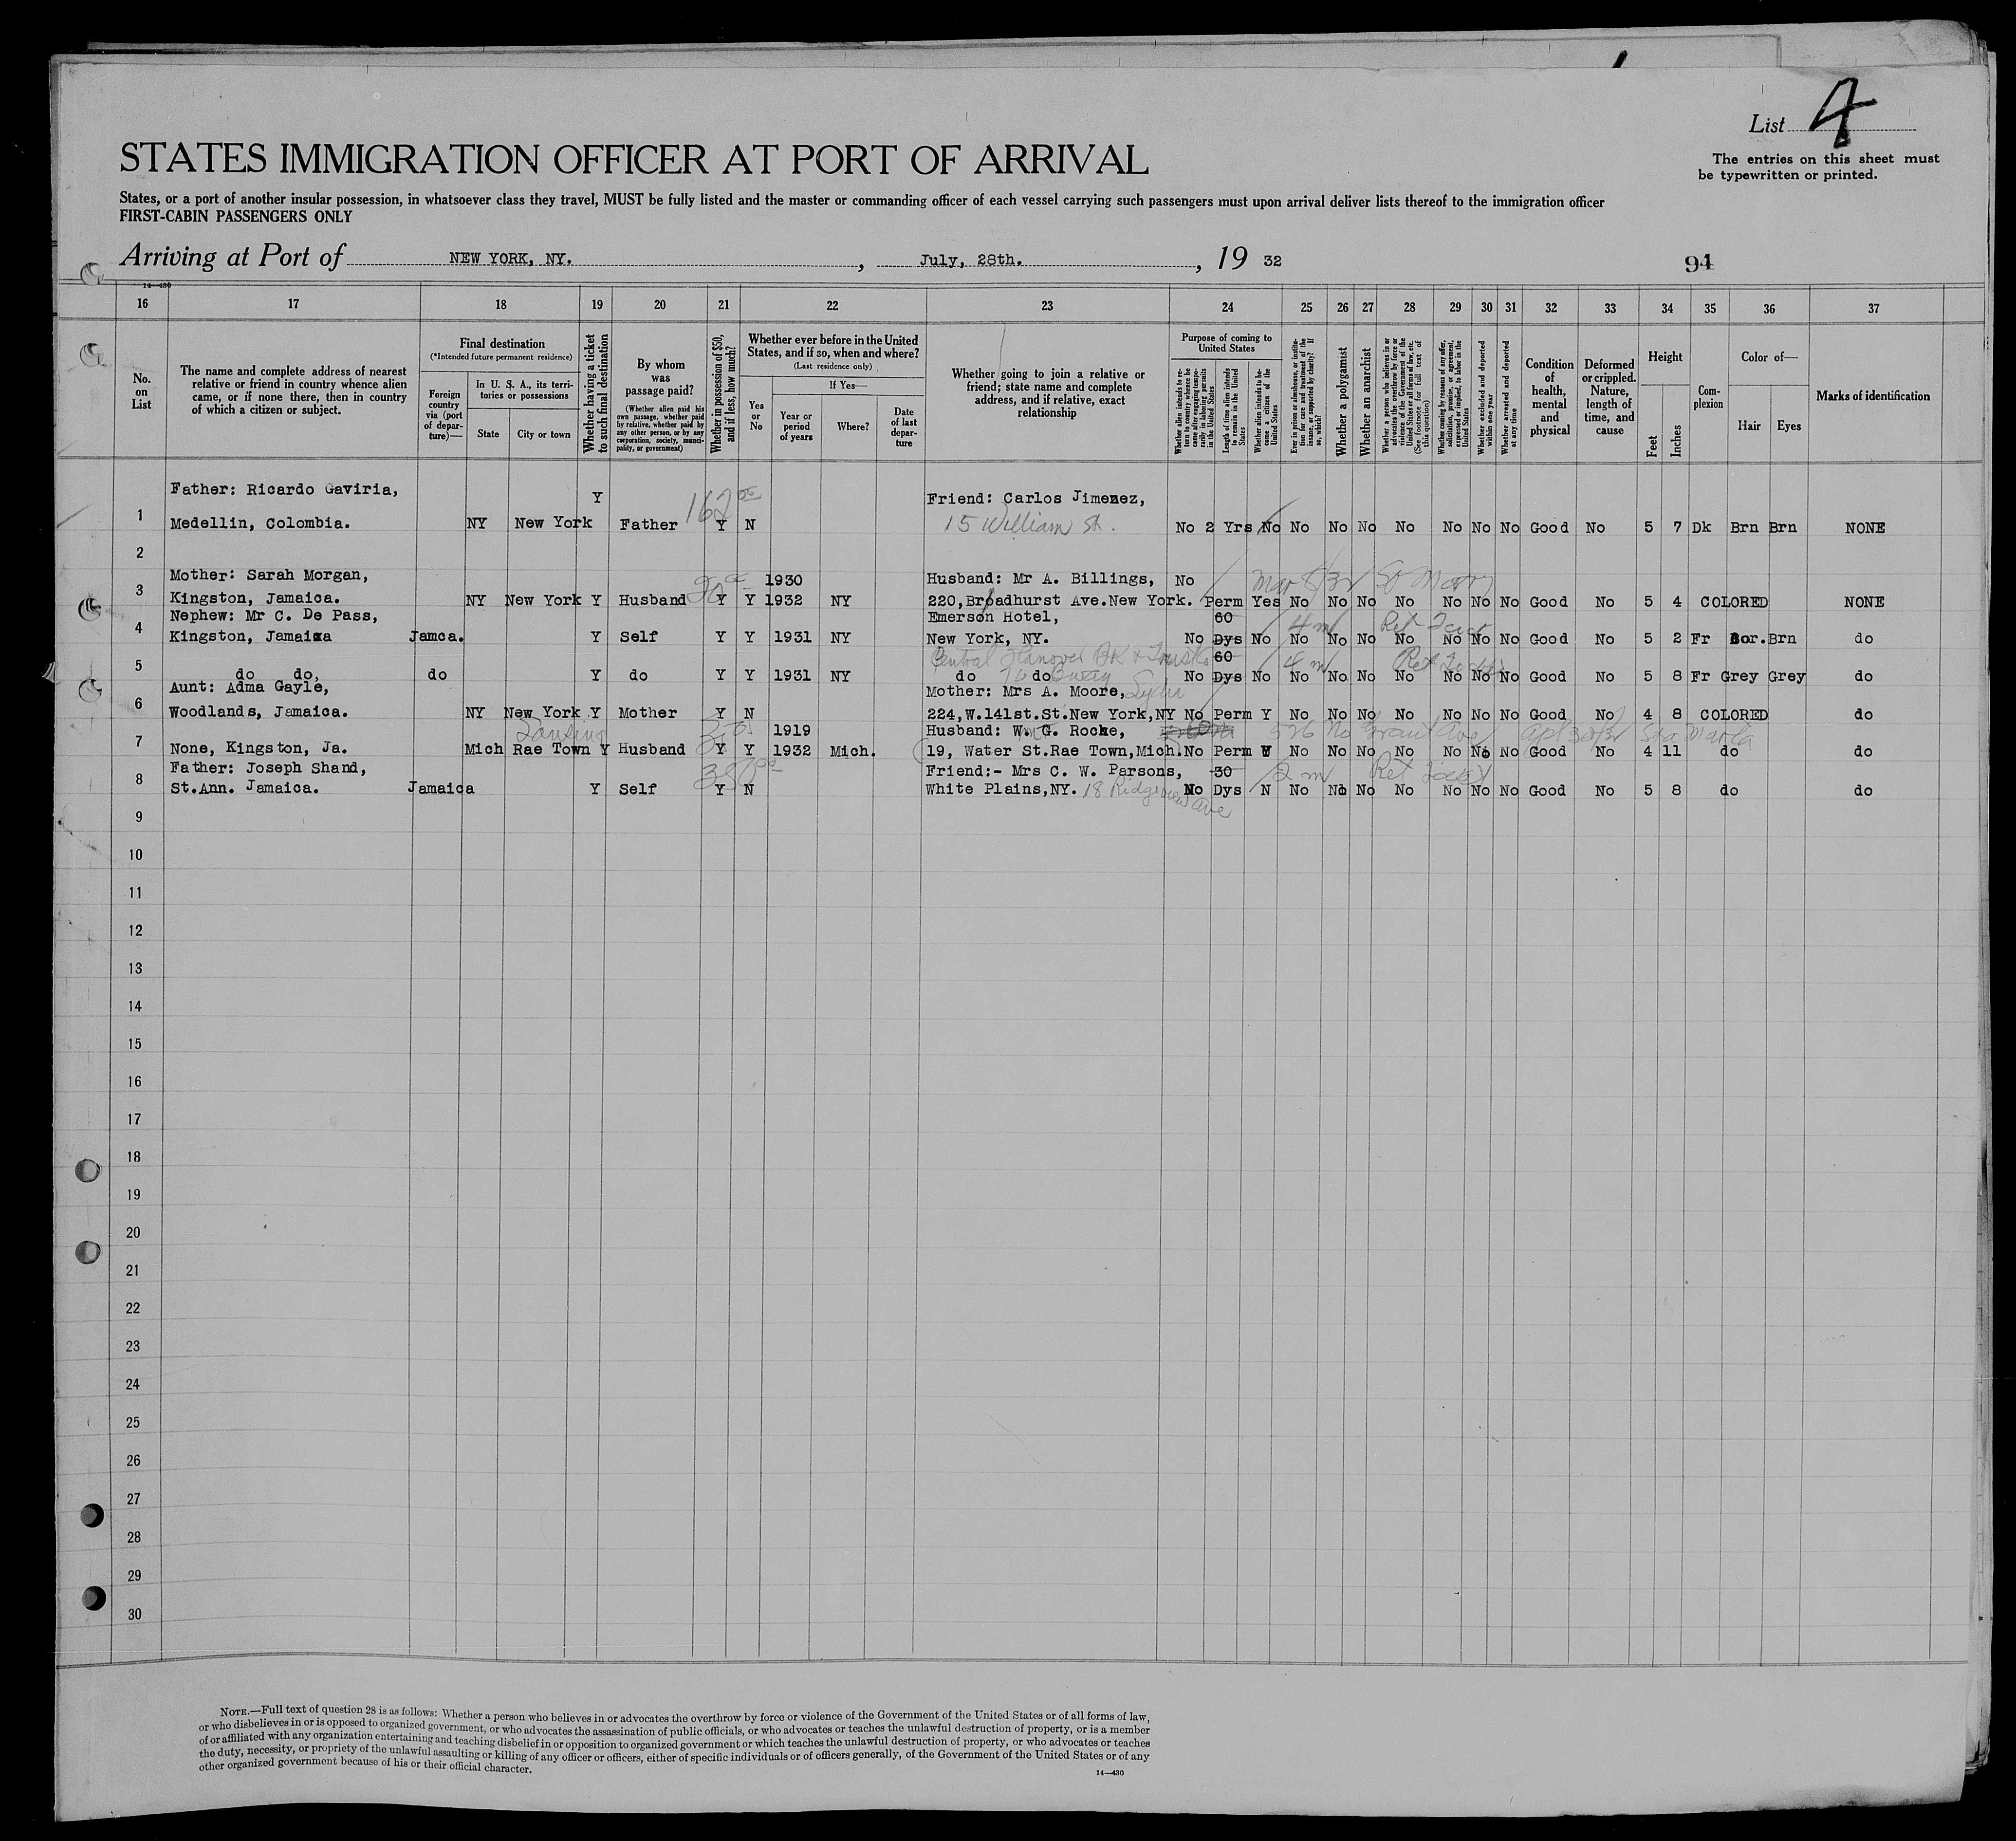 List 4
STATES IMMIGRATION OFFICER AT PORT OF ARRIVAL
The entries on this sheet must
be typewritten or printed.
States, or a port of another insular possession, in whatsoever class they travel, MUST be fully listed and the master or commanding officer of each vessel carrying such passengers must upon arrival deliver lists thereof to the immigration officer
FIRST-CABIN PASSENGERS ONLY
Arriving at Port of NEW YORK, NY. , July, 28th. , 19 32
94
14—430
16 17 18 19 20 21 22 23 24 25 26 27 28 29 30 31 32 33 34 35 36 37
No. on List
The name and complete address of nearest relative or friend in country whence alien came, or if none there, then in country of which a citizen or subject.
Final destination
(*Intended future permanent residence)
Foreign country via (port of departure)—
In U. S. A., its territories or possessions
State
City or town
Whether having a ticket to such final destination
By whom was passage paid?
(Whether alien paid his own passage, whether paid by relative, whether paid by any other person, or by any corporation, society, municipality, or government)
Whether in possession of $50, and if less, how much?
Whether ever before in the United States, and if so, when and where?
(Last residence only)
Yes or No
If Yes—
Year or period of years
Where?
Date of last departure
Whether going to join a relative or friend; state name and complete address, and if relative, exact relationship
Purpose of coming to United States
Whether alien intends to return to country whence he came after engaging temporarily in laboring pursuits in the United States
Length of time alien intends to remain in the United States
Whether alien intends to become a citizen of the United States
Ever in prison or almshouse, or institution for care and treatment of the insane, or supported by charity? If so, which?
Whether a polygamist
Whether an anarchist
Whether a person who believes in or advocates the overthrow by force or violence of the Government of the United States or all forms of law, etc. (See footnote for full text of this question)
Whether coming by reason of any offer, solicitation, promise, or agreement, expressed or implied, to labor in the United States
Whether excluded and deported within one year
Whether arrested and deported at any time
Condition of health, mental and physical
Deformed or crippled. Nature, length of time, and cause
Height
Feet
Inches
Complexion
Color of—
Hair
Eyes
Marks of identification
Father: Ricardo Gaviria, Y 162 Friend: Carlos Jimenez,
1 Medellin, Colombia. NY New York Father Y N 15 William St. No 2 Yrs No No No No No No No No Good No 5 7 Dk Brn Brn NONE
2
Mother: Sarah Morgan, 1930 Husband: Mr A. Billings, No
3 Kingston, Jamaica. NY New York Y Husband Y Y 1932 NY 220,Broadhurst Ave.New York. Perm Yes No No No No No No No Good No 5 4 COLORED NONE
Nephew: Mr C. De Pass, Emerson Hotel, 60 4 m
4 Kingston, Jamaixa Jamca. Y Self Y Y 1931 NY New York, NY. No Dys No No No No No No No No Good No 5 2 Fr Bor. Brn do
Central Hanover Bk & Trust 60 4 m
5 do do, do Y do Y Y 1931 NY do do No Dys No No No No No No No No Good No 5 8 Fr Grey Grey do
Aunt: Adma Gayle, Mother: Mrs A. Moore,
6 Woodlands, Jamaica. NY New York Y Mother Y N 224,W.141st.St.New York,NY No Perm Y No No No No No No No Good No 4 8 COLORED do
Lansing 1919 Husband: W. G. Rocke,
7 None, Kingston, Ja. Mich Rae Town Y Husband Y Y 1932 Mich. 19, Water St.Rae Town,Mich. No Perm Y No No No No No No No Good No 4 11 do do
Father: Joseph Shand, Friend:- Mrs C. W. Parsons, 30 2 m
8 St.Ann. Jamaica. Jamaica Y Self Y N White Plains,NY. 18 Ridgeview Ave No Dys N No No No No No No No Good No 5 8 do do
9
10
11
12
13
14
15
16
17
18
19
20
21
22
23
24
25
26
27
28
29
30
NOTE.—Full text of question 28 is as follows: Whether a person who believes in or advocates the overthrow by force or violence of the Government of the United States or of all forms of law,
or who disbelieves in or is opposed to organized government, or who advocates the assassination of public officials, or who advocates or teaches the unlawful destruction of property, or is a member
of or affiliated with any organization entertaining and teaching disbelief in or opposition to organized government or which teaches the unlawful destruction of property, or who advocates or teaches
the duty, necessity, or propriety of the unlawful assaulting or killing of any officer or officers, either of specific individuals or of officers generally, of the Government of the United States or of any
other organized government because of his or their official character.
14—430